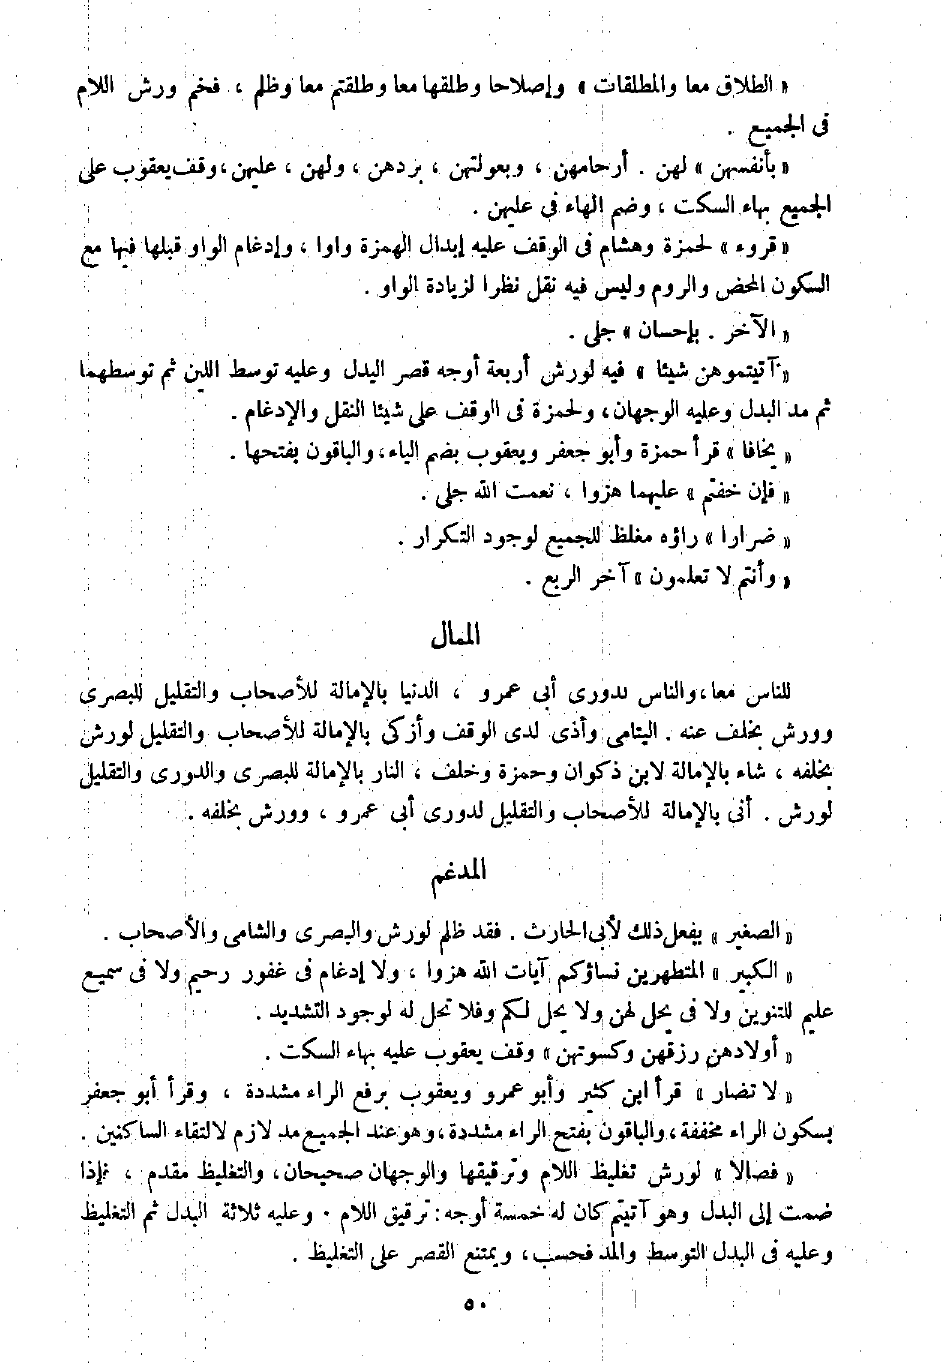 « الطلاق معا والمطلقات » وإصلاحا وطلقها معا وطلقتم معا وظلم ، فخم ورش اللام
فى الجميع .
« بأنفسهن » لهن . أرحامهن ، وبعولتهن ، بردهن ، ولهن ، عليهن ، وقف يعقوب على
الجميع بهاء السكت ، وضم الهاء فى عليهن .
« قروء » لحمزة وهشام فى الوقف عليه إبدال الهمزة واوا ، وإدغام الواو قبلها فيها مع
السكون المحض والروم وليس فيه نقل نظرا لزيادة الواو .
« الآخر . بإحسان » جلى .
« آتيتموهن شيئا » فيه لورش أربعة أوجه قصر البدل وعليه توسط اللين ثم توسطهما
ثم مد البدل وعليه الوجهان ، ولحمزة فى الوقف على شيئا النقل والإدغام .
« يخافا » قرأ حمزة وأبو جعفر ويعقوب بضم الياء ، والباقون بفتحها .
« فإن خفتم » عليهما هزوا ، نعمت الله جلى .
« ضرارا » راؤه مغلظ للجميع لوجود التكرار .
« وأنتم لا تعلمون » آخر الربع .
الممال
للناس معا ، والناس لدورى أبى عمرو ، الدنيا بالإمالة للأصحاب والتقليل للبصرى
وورش بخلف عنه . اليتامى وأذى لدى الوقف وأزكى بالإمالة للأصحاب والتقليل لورش
بخلفه ، شاء بالإمالة لابن ذكوان وحمزة وخلف ، النار بالإمالة للبصرى والدورى والتقليل
لورش . أنى بالإمالة للأصحاب والتقليل لدورى أبى عمرو ، وورش بخلفه .
المدغم
« الصغير » يفعل ذلك لأبى الحارث . فقد ظلم لورش والبصرى والشامى والأصحاب .
« الكبير » المتطهرين نساؤكم آيات الله هزوا ، ولا إدغام فى غفور رحيم ولا فى سميع
عليم للتنوين ولا فى يحل لهن ولا يحل لكم وفلا تحل له لوجود التشديد .
« أولادهن رزقهن وكسوتهن » وقف يعقوب عليه بهاء السكت .
« لا تضار » قرأ ابن كثير وأبو عمرو ويعقوب برفع الراء مشددة ، وقرأ أبو جعفر
بسكون الراء مخففة ، والباقون بفتح الراء مشددة ، وهو عند الجميع مد لازم لالتقاء الساكنين .
« فصالا » لورش تغليظ اللام وترقيقها والوجهان صحيحان ، والتغليظ مقدم ، فإذا
ضمت إلى البدل وهو آتيتم كان له خمسة أوجه : ترقيق اللام . وعليه ثلاثة البدل ثم التغليظ
وعليه فى البدل التوسط والمد فحسب ، ويمتنع القصر على التغليظ .
٥٠